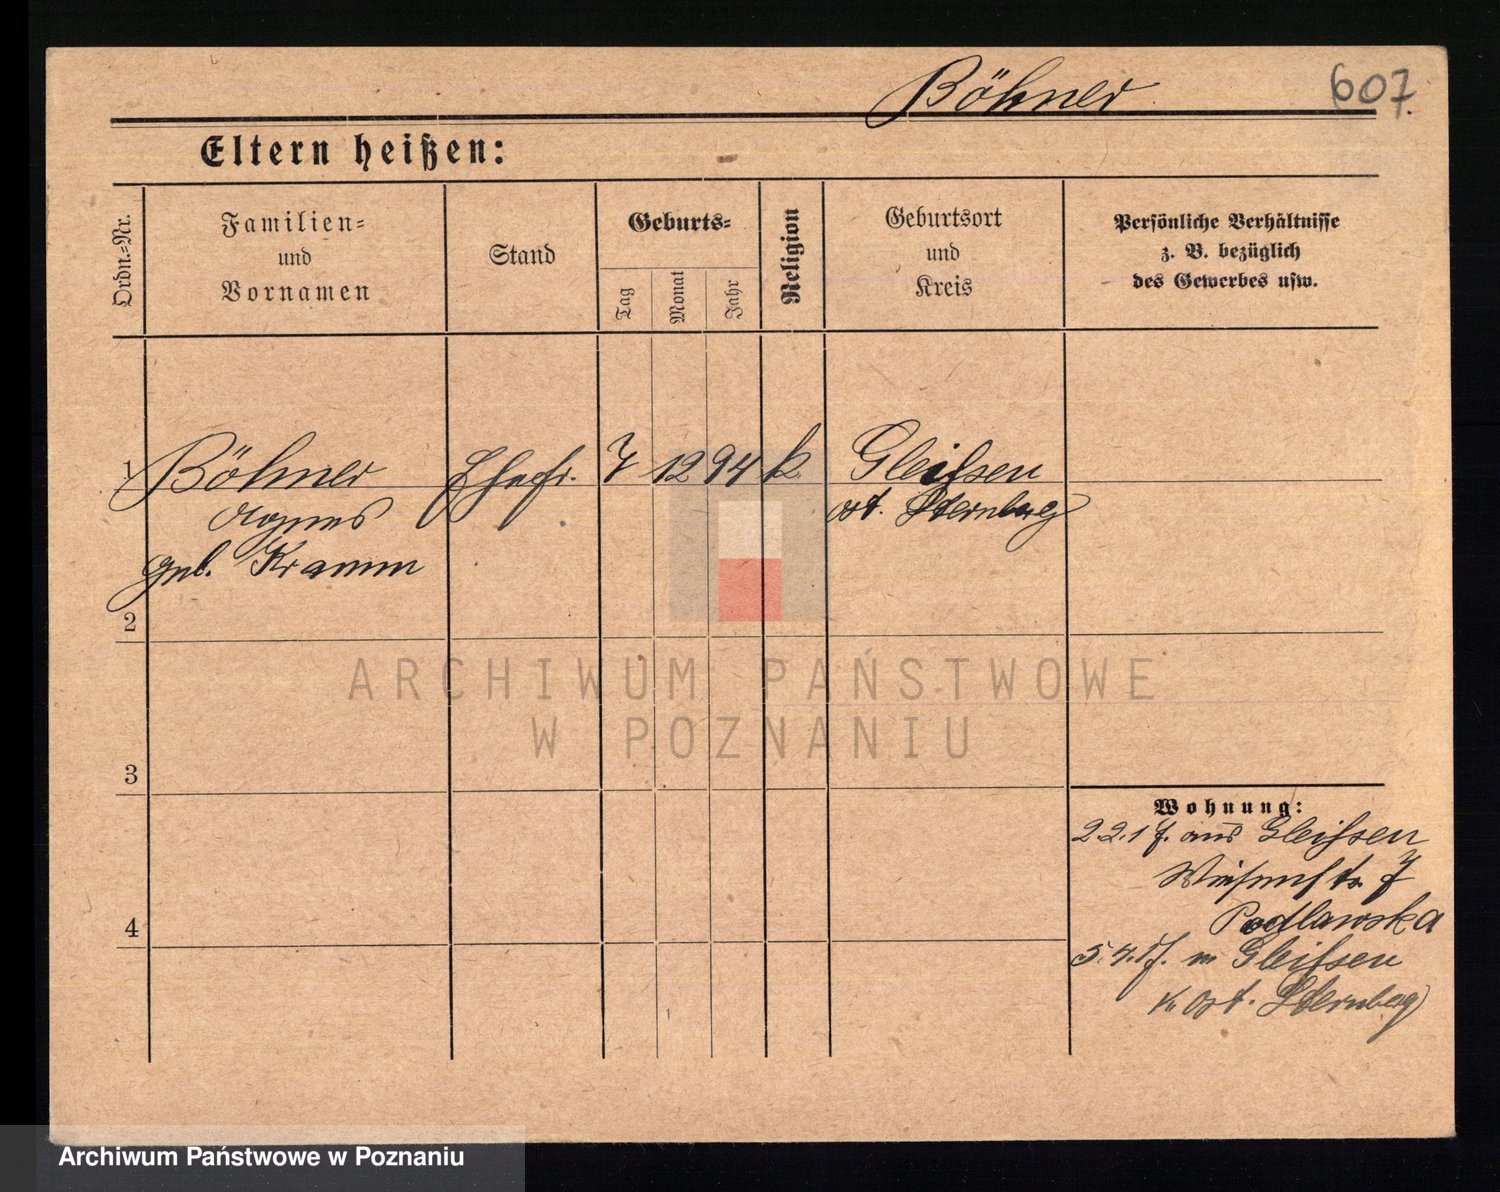 Böhner 607.
Eltern heißen:
Ordn.-Nr.
Familien-
und
Vornamen
Stand
Geburts-
Tag
Monat
Jahr
Religion
Geburtsort
und
Kreis
Persönliche Verhältnisse
z. B. bezüglich
des Gewerbes usw.
1 Böhner Ehefr. 7 12 94 k. Gleissen
Agnes ost. Sternberg
geb. Kramm
2
3
4
Wohnung:
22.1 17. aus Gleissen
Wiesenstr. 7
Podlawska
5.4.17. n Gleissen
K. Ost. Sternberg
ARCHIWUM PAŃSTWOWE
W POZNANIU
Archiwum Państwowe w Poznaniu